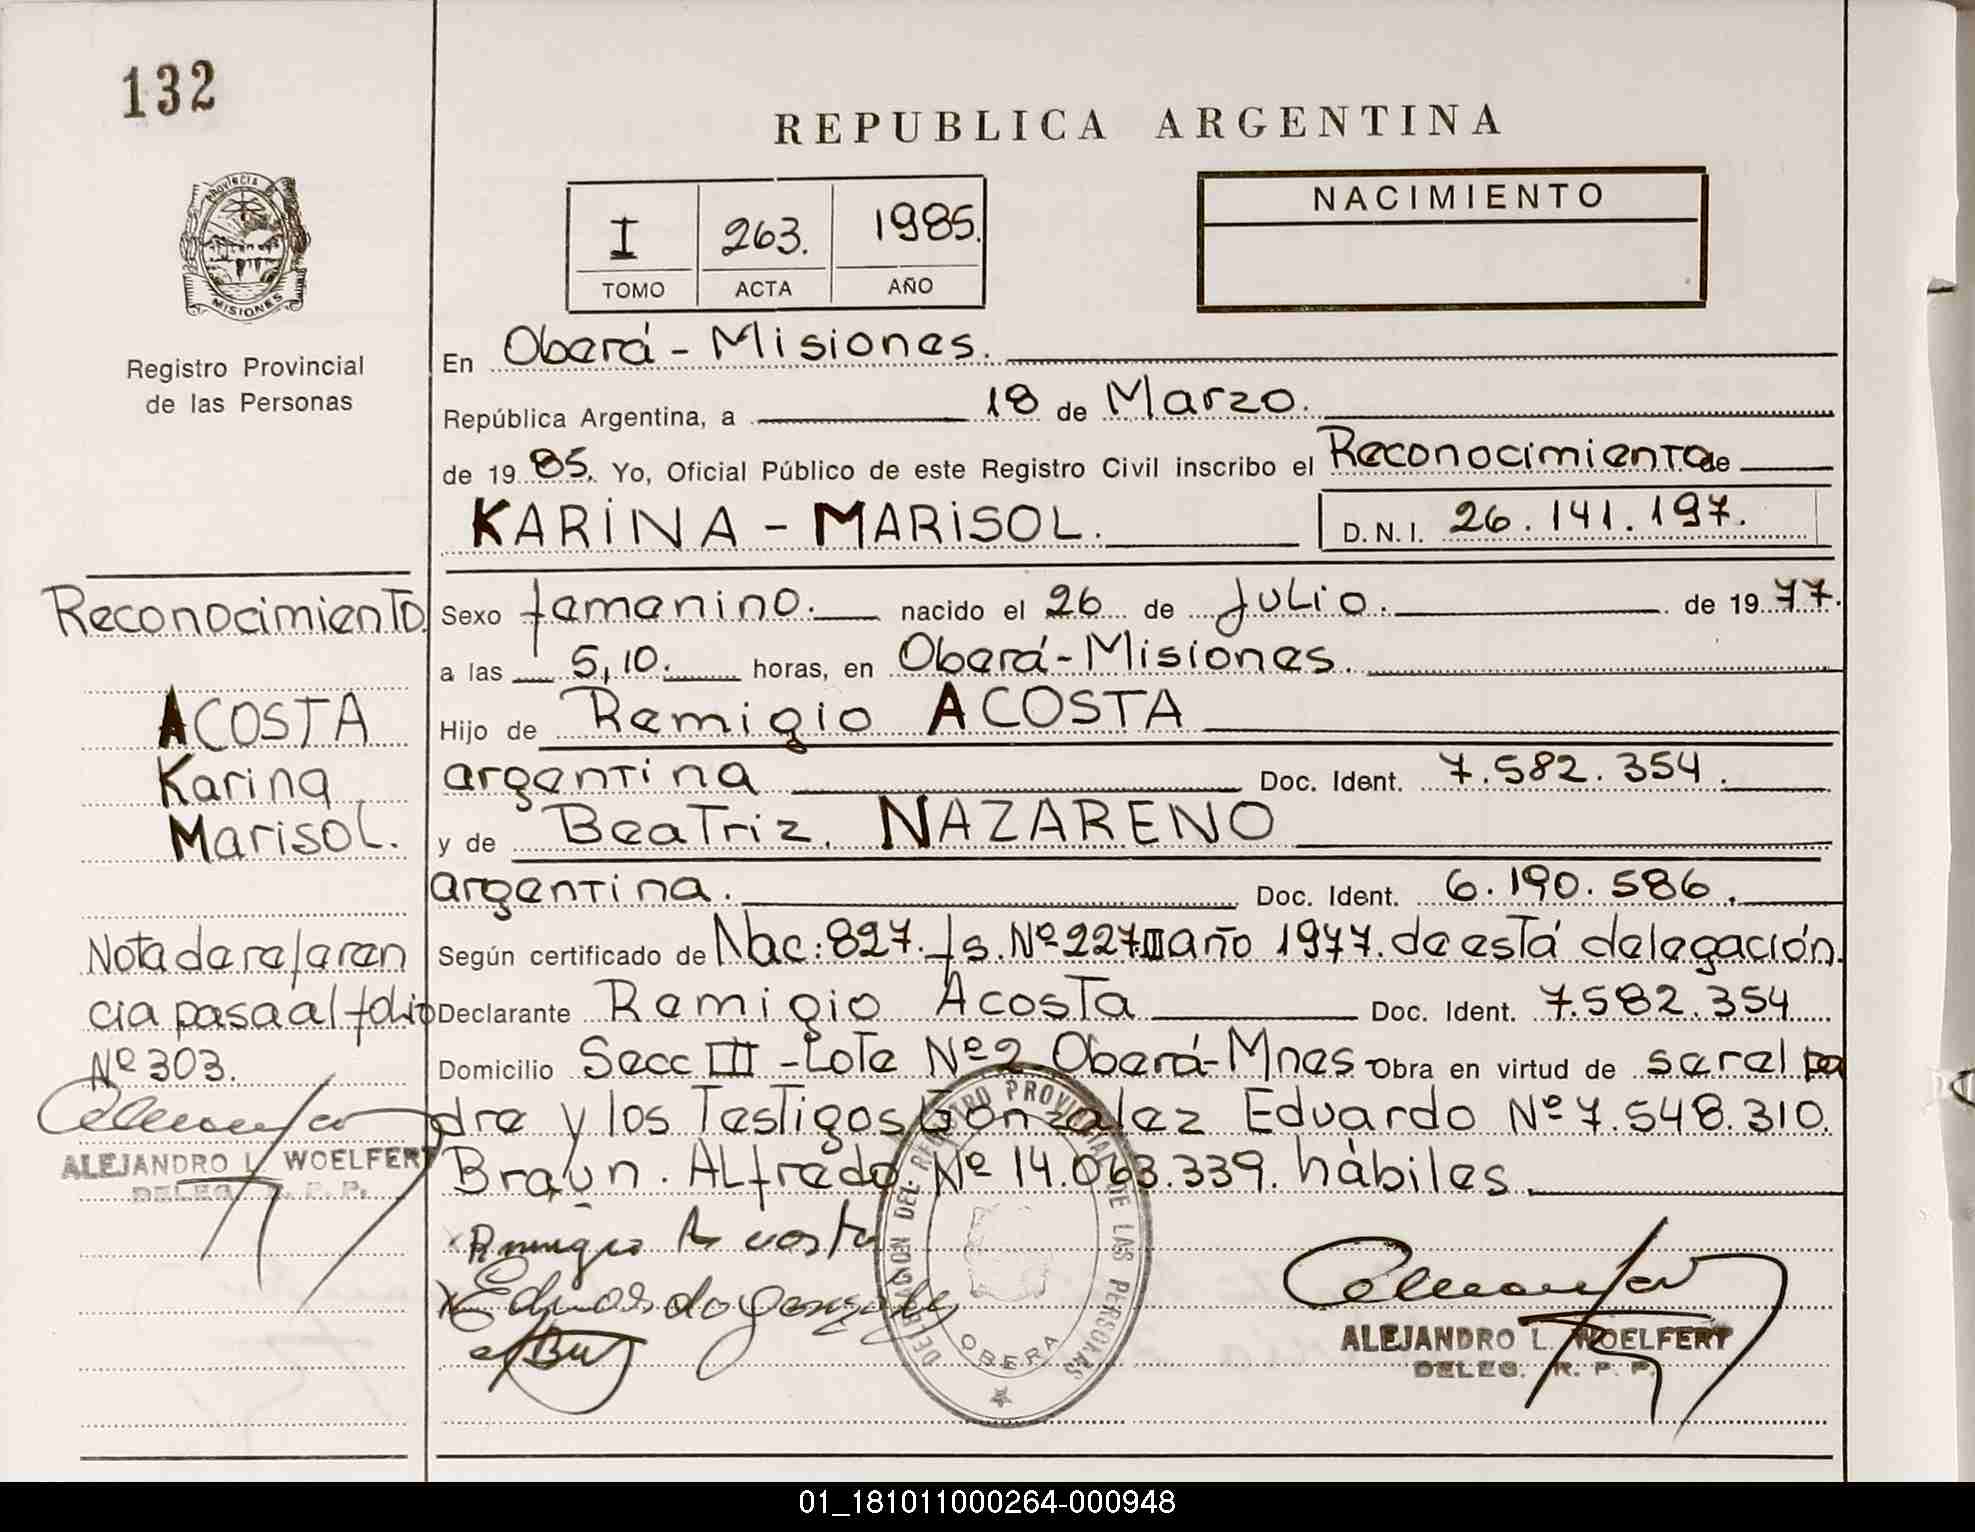 132
REPUBLICA ARGENTINA
Provincia
MISIONES
I 263. 1985.
TOMO ACTA AÑO
NACIMIENTO
Registro Provincial
de las Personas
En Oberá - Misiones.
República Argentina, a 18 de Marzo.
de 19 85. Yo, Oficial Público de este Registro Civil inscribo el Reconocimiento de
KARINA - MARISOL. D.N.I. 26.141.197.
Reconocimiento.
ACOSTA
Karina
Marisol.
Nota de referen
cia pasa al folio
Nº 303.
ALEJANDRO L. WOELFERT
DELEG. R. P. P.
Sexo femenino. nacido el 26 de Julio. de 19 77.
a las 5,10. horas, en Oberá - Misiones.
Hijo de Remigio ACOSTA
argentina Doc. Ident. 7.582.354.
y de Beatriz. NAZARENO
argentina. Doc. Ident. 6.190.586.
Según certificado de Nac: 827. fs. Nº 227 III año 1977. de está delegación.
Declarante Remigio Acosta Doc. Ident. 7.582.354
Domicilio Secc III - Lote Nº 2 Oberá - Mnes Obra en virtud de ser el pa
dre y los Testigos Gonzalez Eduardo Nº 7.548.310.
Braun. Alfredo Nº 14.063.339. hábiles.
Remigio Acosta
Eduardo Gonzalez
DELEGACION DEL REGISTRO PROVINCIAL DE LAS PERSONAS
OBERA
ALEJANDRO L. WOELFERT
DELEG. R. P. P.
01_181011000264-000948